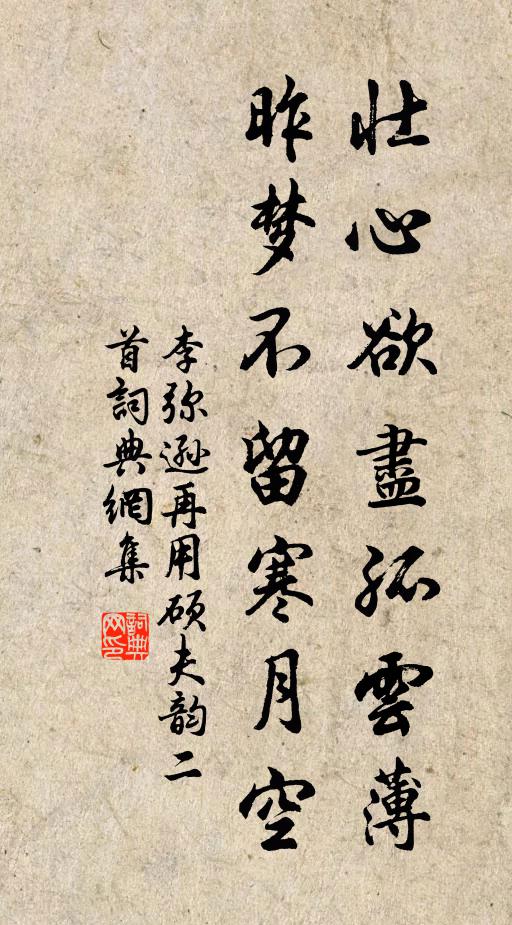 壮心欲盡孤雲薄
昨梦不留寒月空
李弥遜再用硕夫韵二
首詞典網集
詞典
网印